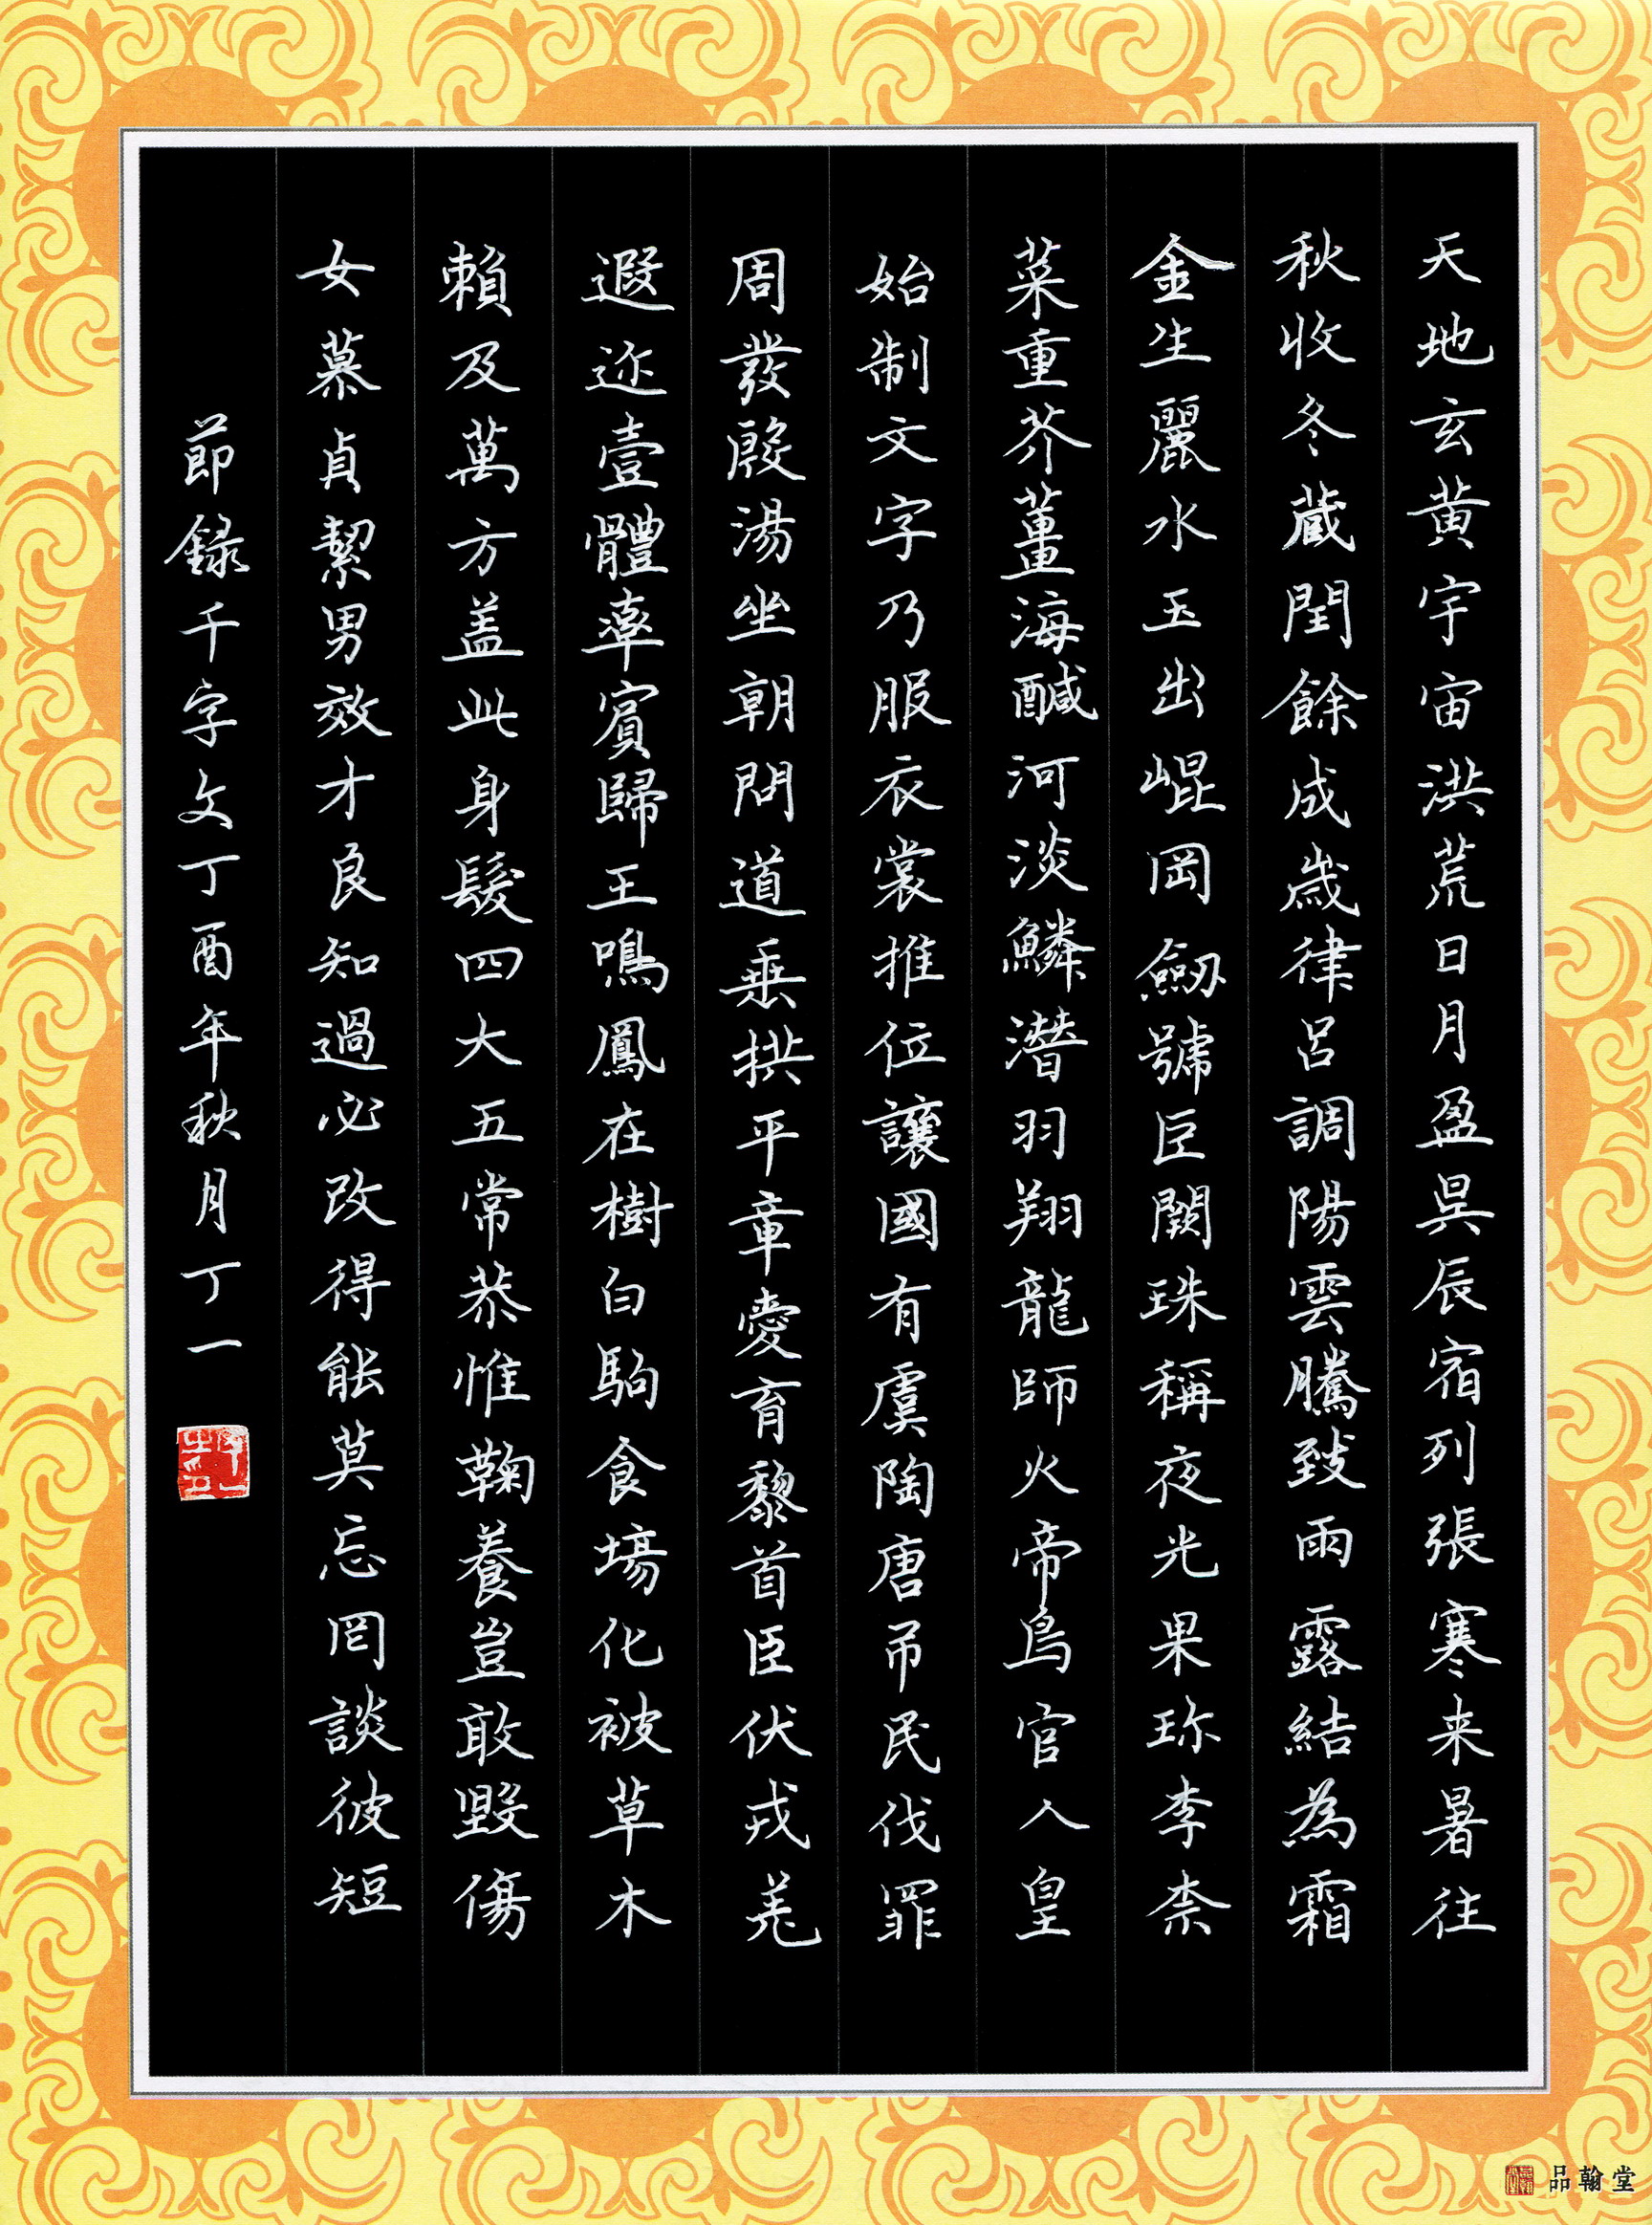 天地玄黄宇宙洪荒日月盈昃辰宿列張寒来暑往
秋收冬蔵閏餘成歲律呂調陽雲騰致雨露結為霜
金生麗水玉出崐岡劒號臣闕珠稱夜光果珎李柰
菜重芥薑海醎河淡鱗潛羽翔龍師火帝鳥官人皇
始制文字乃服衣裳推位讓國有虞陶唐吊民伐罪
周發殷湯坐朝問道垂拱平章愛育黎首臣伏戎羌
遐迩壹體率賓歸王鳴鳳在樹白駒食場化被草木
賴及萬方盖此身髮四大五常恭惟鞠養豈敢毀傷
女慕貞絜男效才良知過必改得能莫忘罔談彼短
節録千字文丁酉年秋月丁一
品翰堂